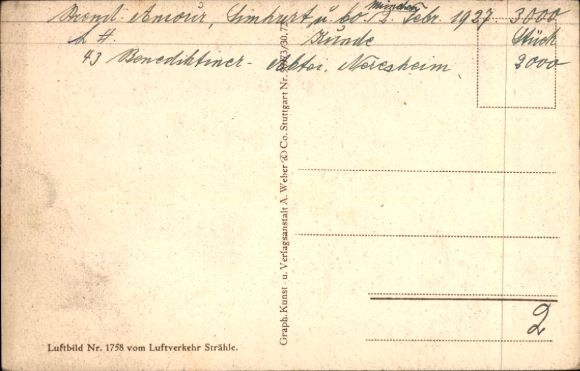 Amour, u. Co. München 2. Febr. 1927 3000
Kunde Stück
43 Benediktiner-Abtei, Neresheim. 3000
Graph. Kunst u. Verlagsanstalt A. Weber & Co. Stuttgart Nr.
2
Luftbild Nr. 1758 vom Luftverkehr Strähle.